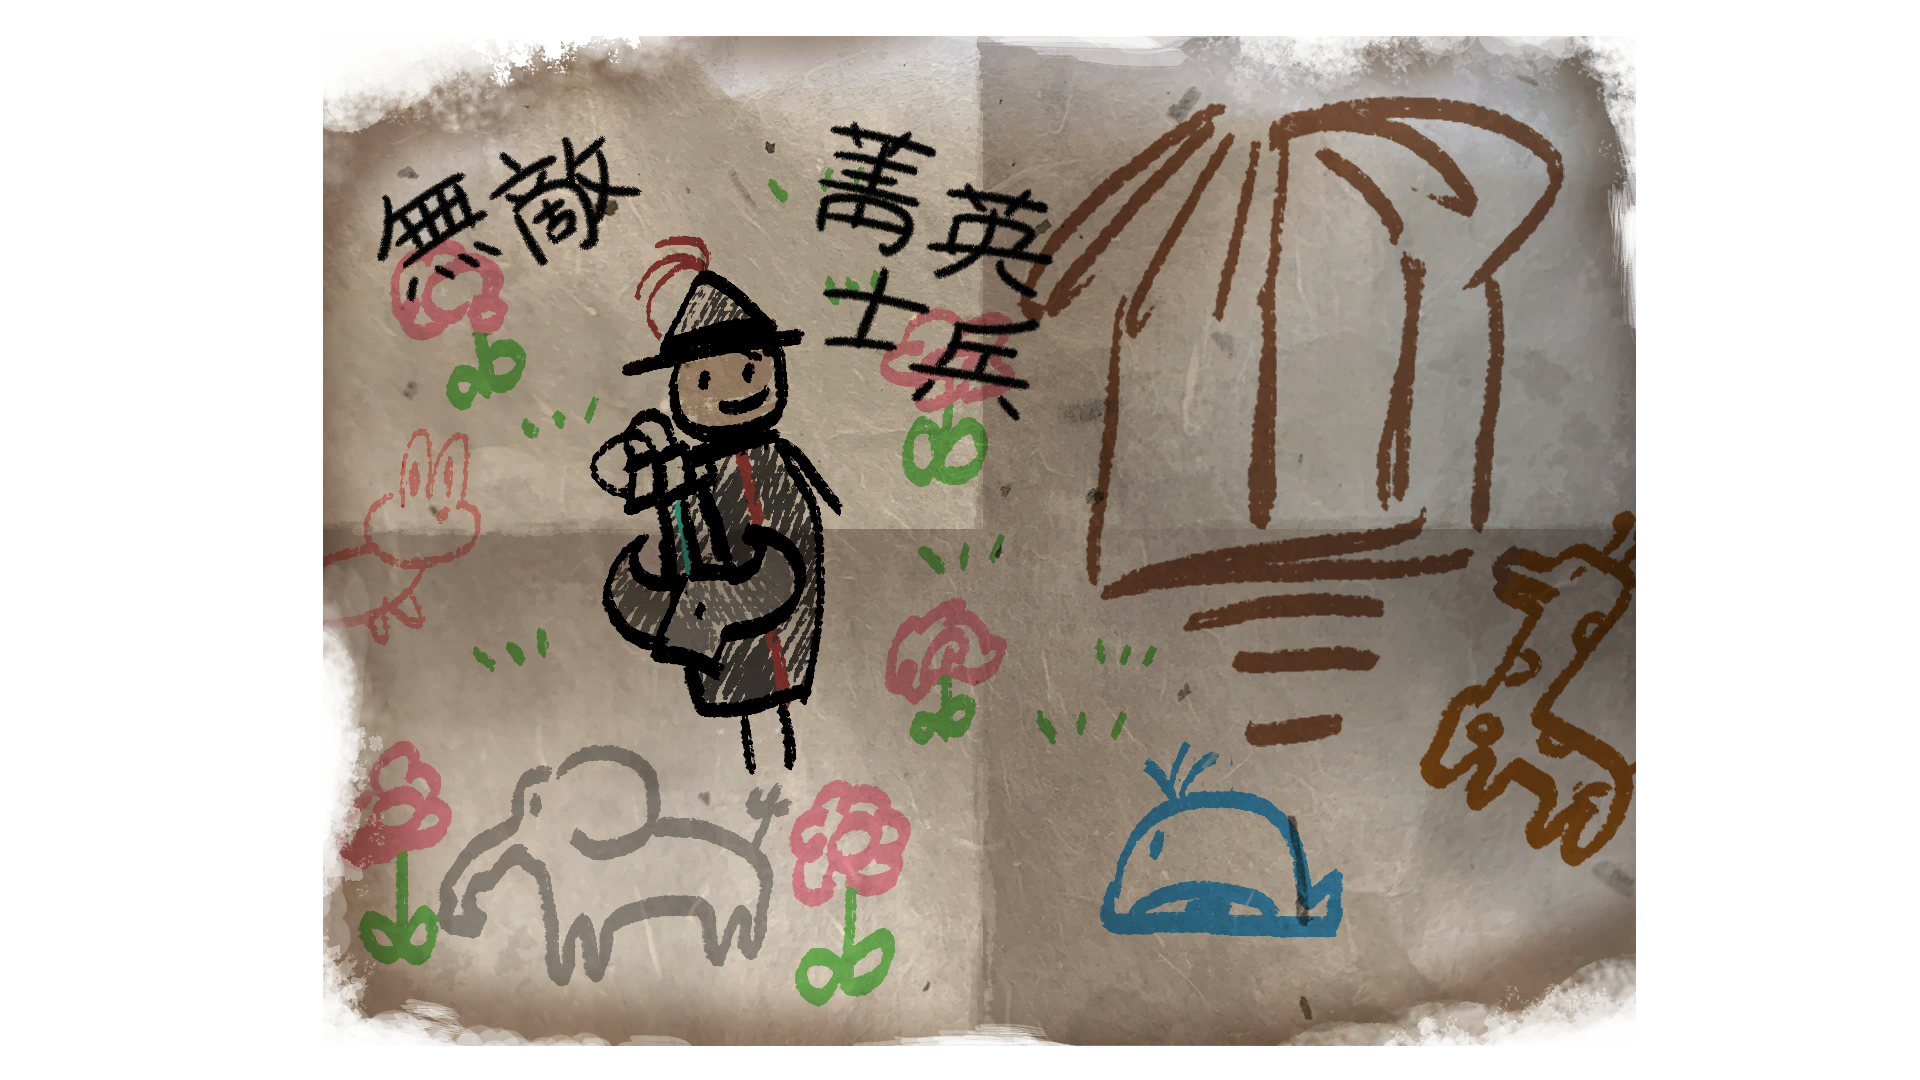 無敵
菁英
士兵